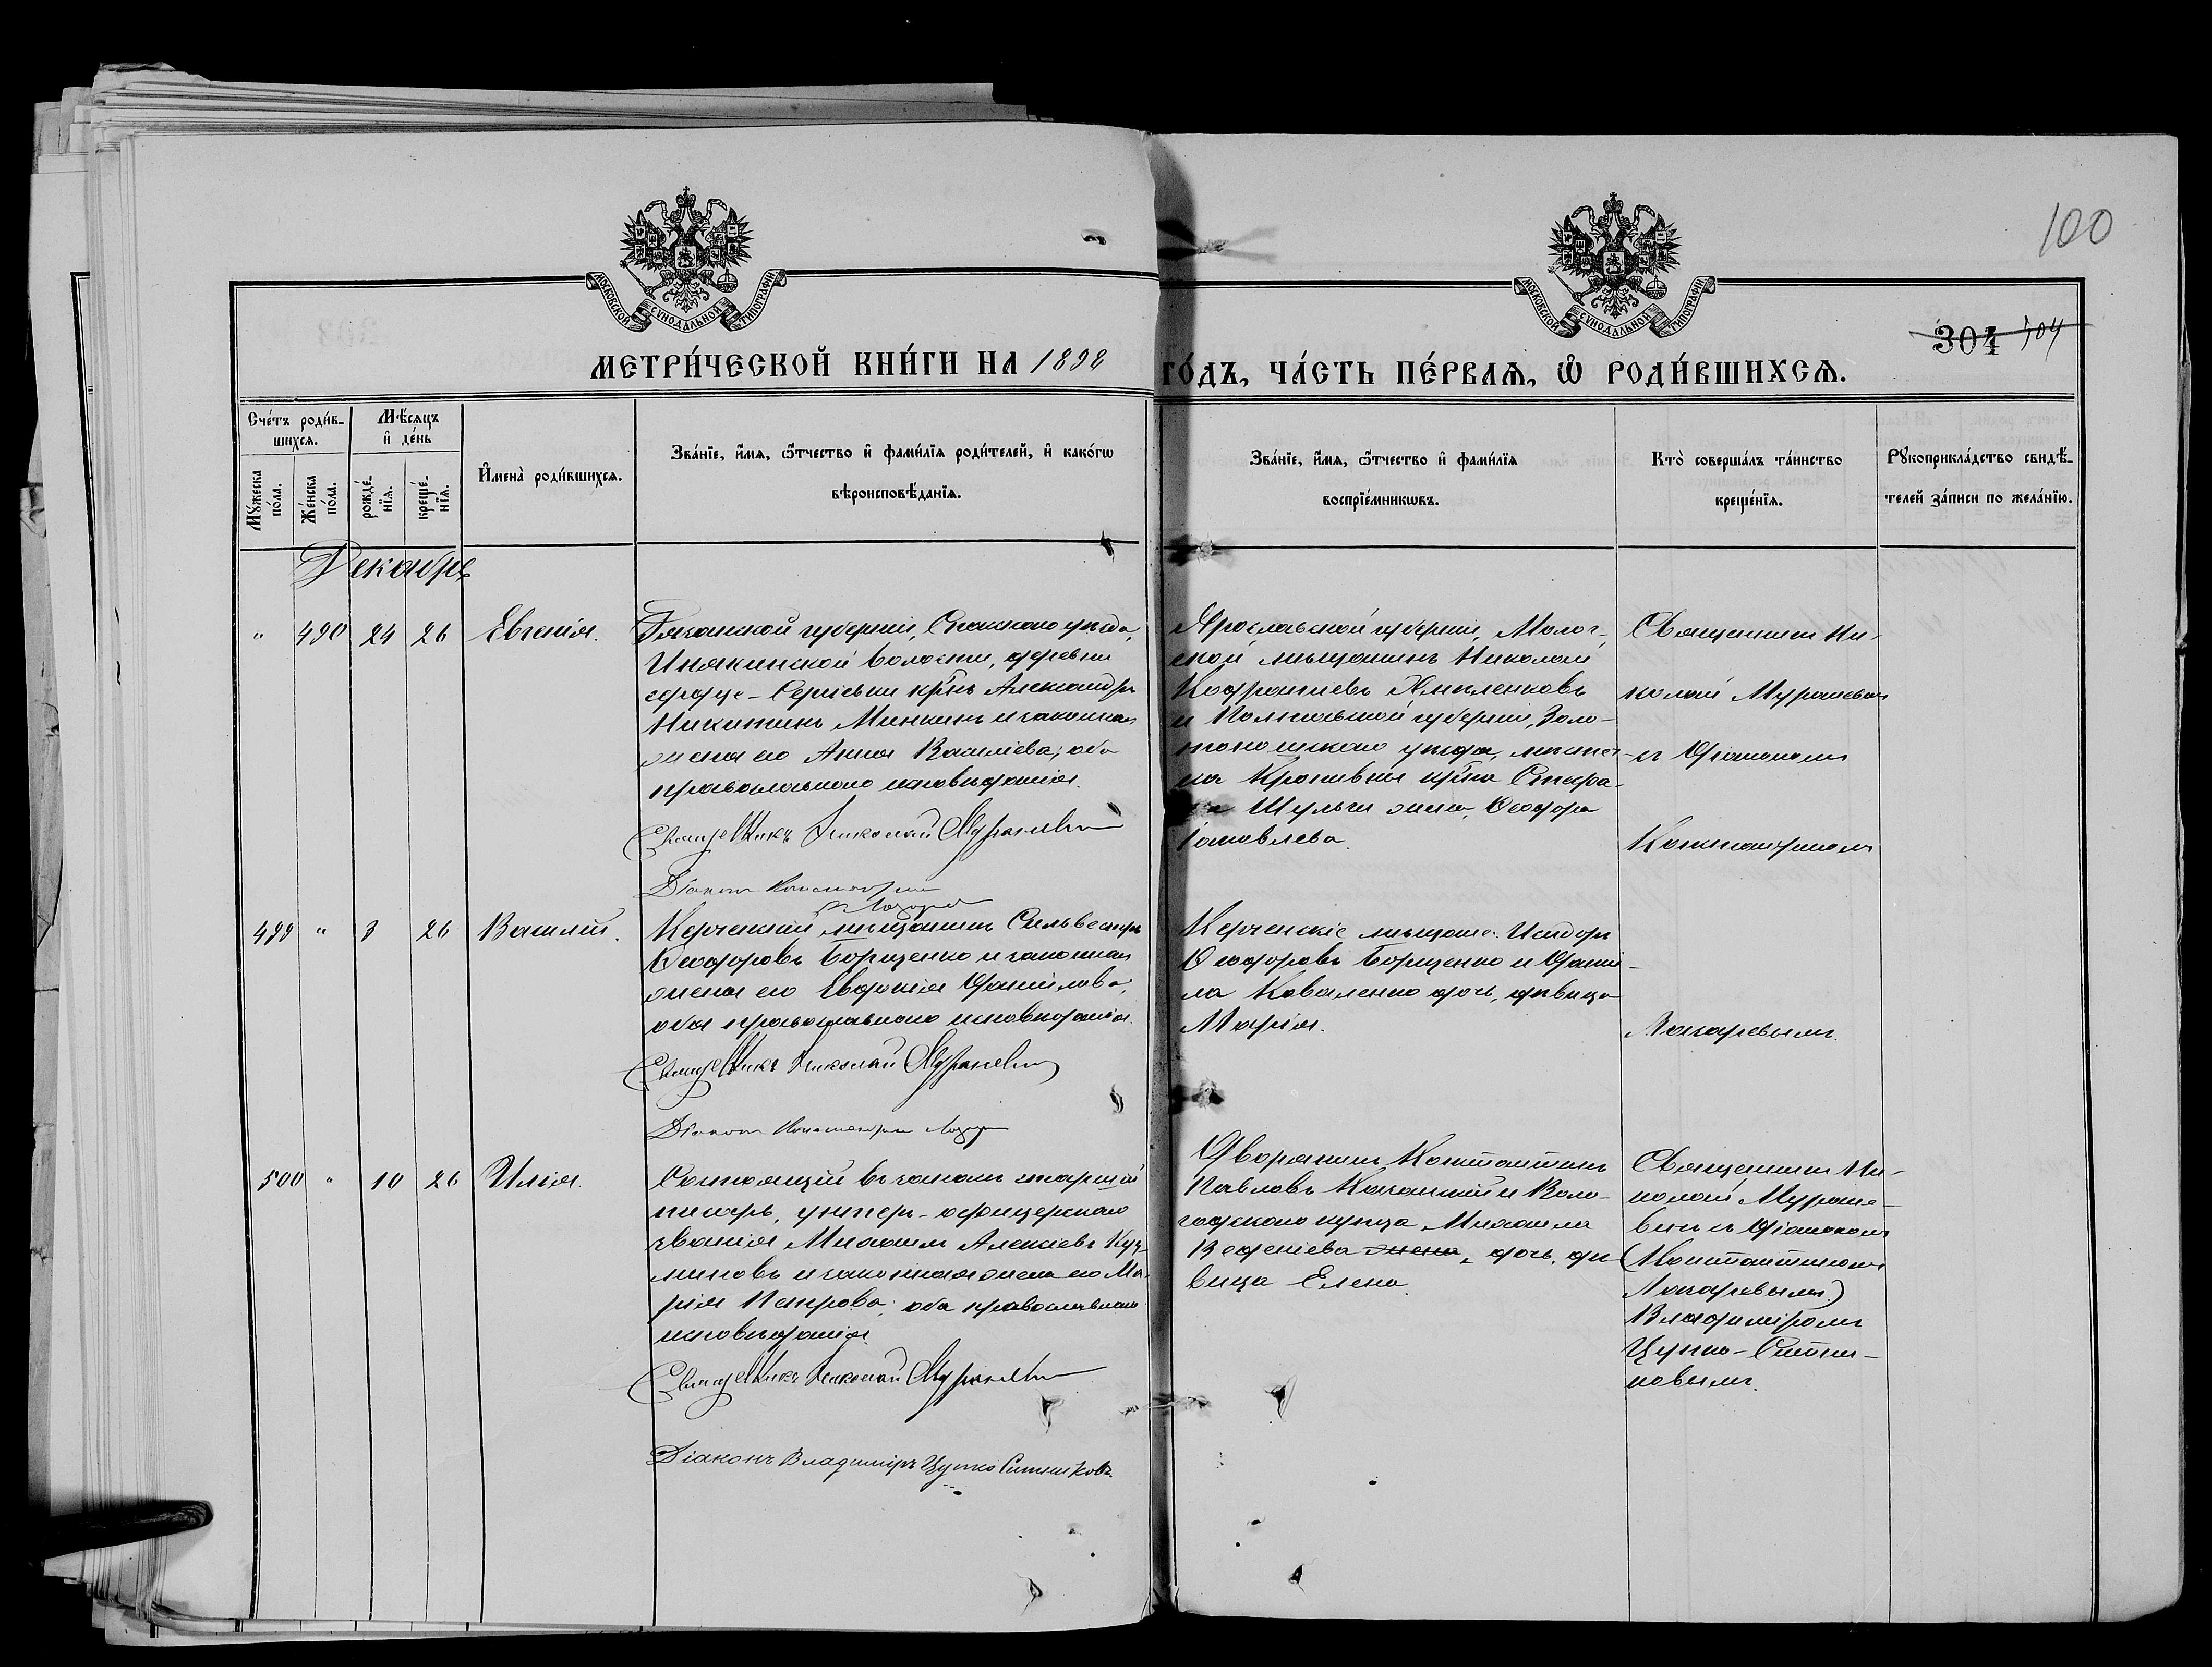 100
МОСКОВСКОЙ СѴНОДАЛЬНОЙ ТИПОГРАФІИ
МОСКОВСКОЙ СѴНОДАЛЬНОЙ ТИПОГРАФІИ
304 304
МЕТРИ́ЧЕСКОЙ КНИ́ГИ НА 1898 ГО́ДЪ, ЧА́СТЬ ПЕ́РВАѦ, Ѽ РОДИ́ВШИХСѦ.
Сче́тъ роди́в-
шихсѧ.
Мꙋ́жеска по́ла.
Же́нска по́ла.
Мѣ́сѧцъ
и҆ де́нь
рожде́-
нїѧ.
креще́-
нїѧ.
И҆мена̀ роди́вшихсѧ.
Зва́нїе, и҆́мѧ, ѻ҆́тчество и҆ фами́лїѧ роди́телей, и҆ како́гѡ
вѣроисповѣ́данїѧ.
Зва́нїе, и҆́мѧ, ѻ҆́тчество и҆ фами́лїѧ
воспрїе́мникѡвъ.
Кто̀ соверша́лъ та́инство
креще́нїѧ.
Рꙋкоприкла́дство свидѣ́-
телей за́писи по жела́нїю.
Декабрь
" 490 24 26 Евгенія.
Рязанской губерніи, Спасскаго уѣзда,
Инякинской волости, деревни
кр̃нъ Александръ
Никитинъ Минкинъ и законная
жена его Анна Василіева; оба
православнаго исповѣданія.
Священникъ Николай Мураневичъ
Діаконъ Константинъ
Лазаревъ
Ярославской губерніи, Молог-
ской мѣщанинъ Николай
Кодратіевъ Хмѣленковъ
и Полтавской губерніи, Золо-
тоношскаго уѣзда, мѣстеч-
ка Кропивны кр̃на
Шульги жена, Ѳеодора
Іаковлева.
Священникъ Ни-
колай Мураневичъ
съ Діакономъ
Константиномъ
499 " 3 26 Василій.
Керченскій мѣщанинъ Сильвестръ
Ѳеодоровъ Борщенко и законная
жена его Евдокія Даніилова,
оба православнаго исповѣданія.
Священникъ Николай Мураневичъ
Діаконъ Константинъ Лазаревъ
Керченскіе мѣщане: Исидоръ
Ѳеодоровъ Борщенко и Дании-
ла Коваленко дочь, дѣвица
Марія.
Лазаревымъ.
500 " 10 26 Илія.
Состоящій въ запасѣ старшій
писарь, унтеръ-офицерскаго
званія Михаилъ Алексіевъ Куз-
миновъ и законная жена его Ма-
рія Петрова; оба православнаго
исповѣданія
Священникъ Николай Мураневичъ
Діаконъ Владиміръ Цупко Ситниковъ
Дворянинъ Константинъ
Павловъ Казанскій и Воло-
годскаго купца Михаила
Веденіева жена, дочь, дѣ-
вица Елена.
Священникъ Ни-
колай Муране-
вичъ съ Діакономъ
(Константиномъ
Лазаревымъ)
Владиміромъ
Цупко-Ситни-
ковымъ.